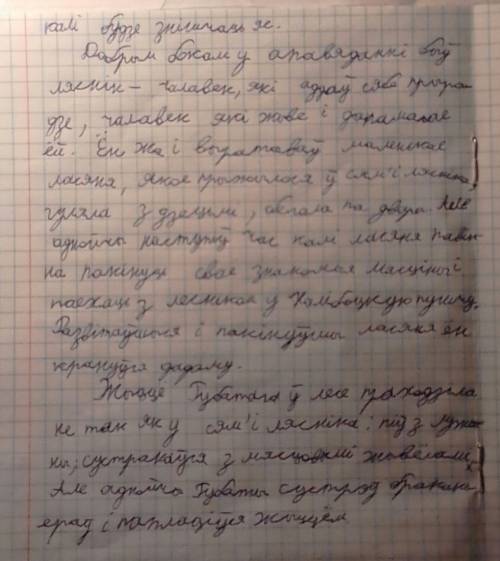 калі будзе знішчаць яе.
Добрым бокам у апавяданні быў
ляснік – чалавек, які аддаў сябе прыро-
дзе, чалавек які жыве і дапамагае
ёй. Ён жа і выратаваў маленькае
ласяня, якое прыжылося ў сям'і лясніка
гуляла з дзецьмі, бегала па двары. Але
аднойчы наступіў час калі ласяня павін-
на пакінуць свае знаёмыя мясціны і
паехаць з лесніком у пушчу.
Развітаўшыся і пакінуўшы ласяня ён
крануўся дадому.
Жыццё Губатага ў лесе праходзіла
не так як у сям'і лясніка: піў з лужы-
ны, сустракаўся з мясцовымі жывёламі.
Але аднойчы Губаты сустрэў бракань-
ераў і паплаціўся жыццём